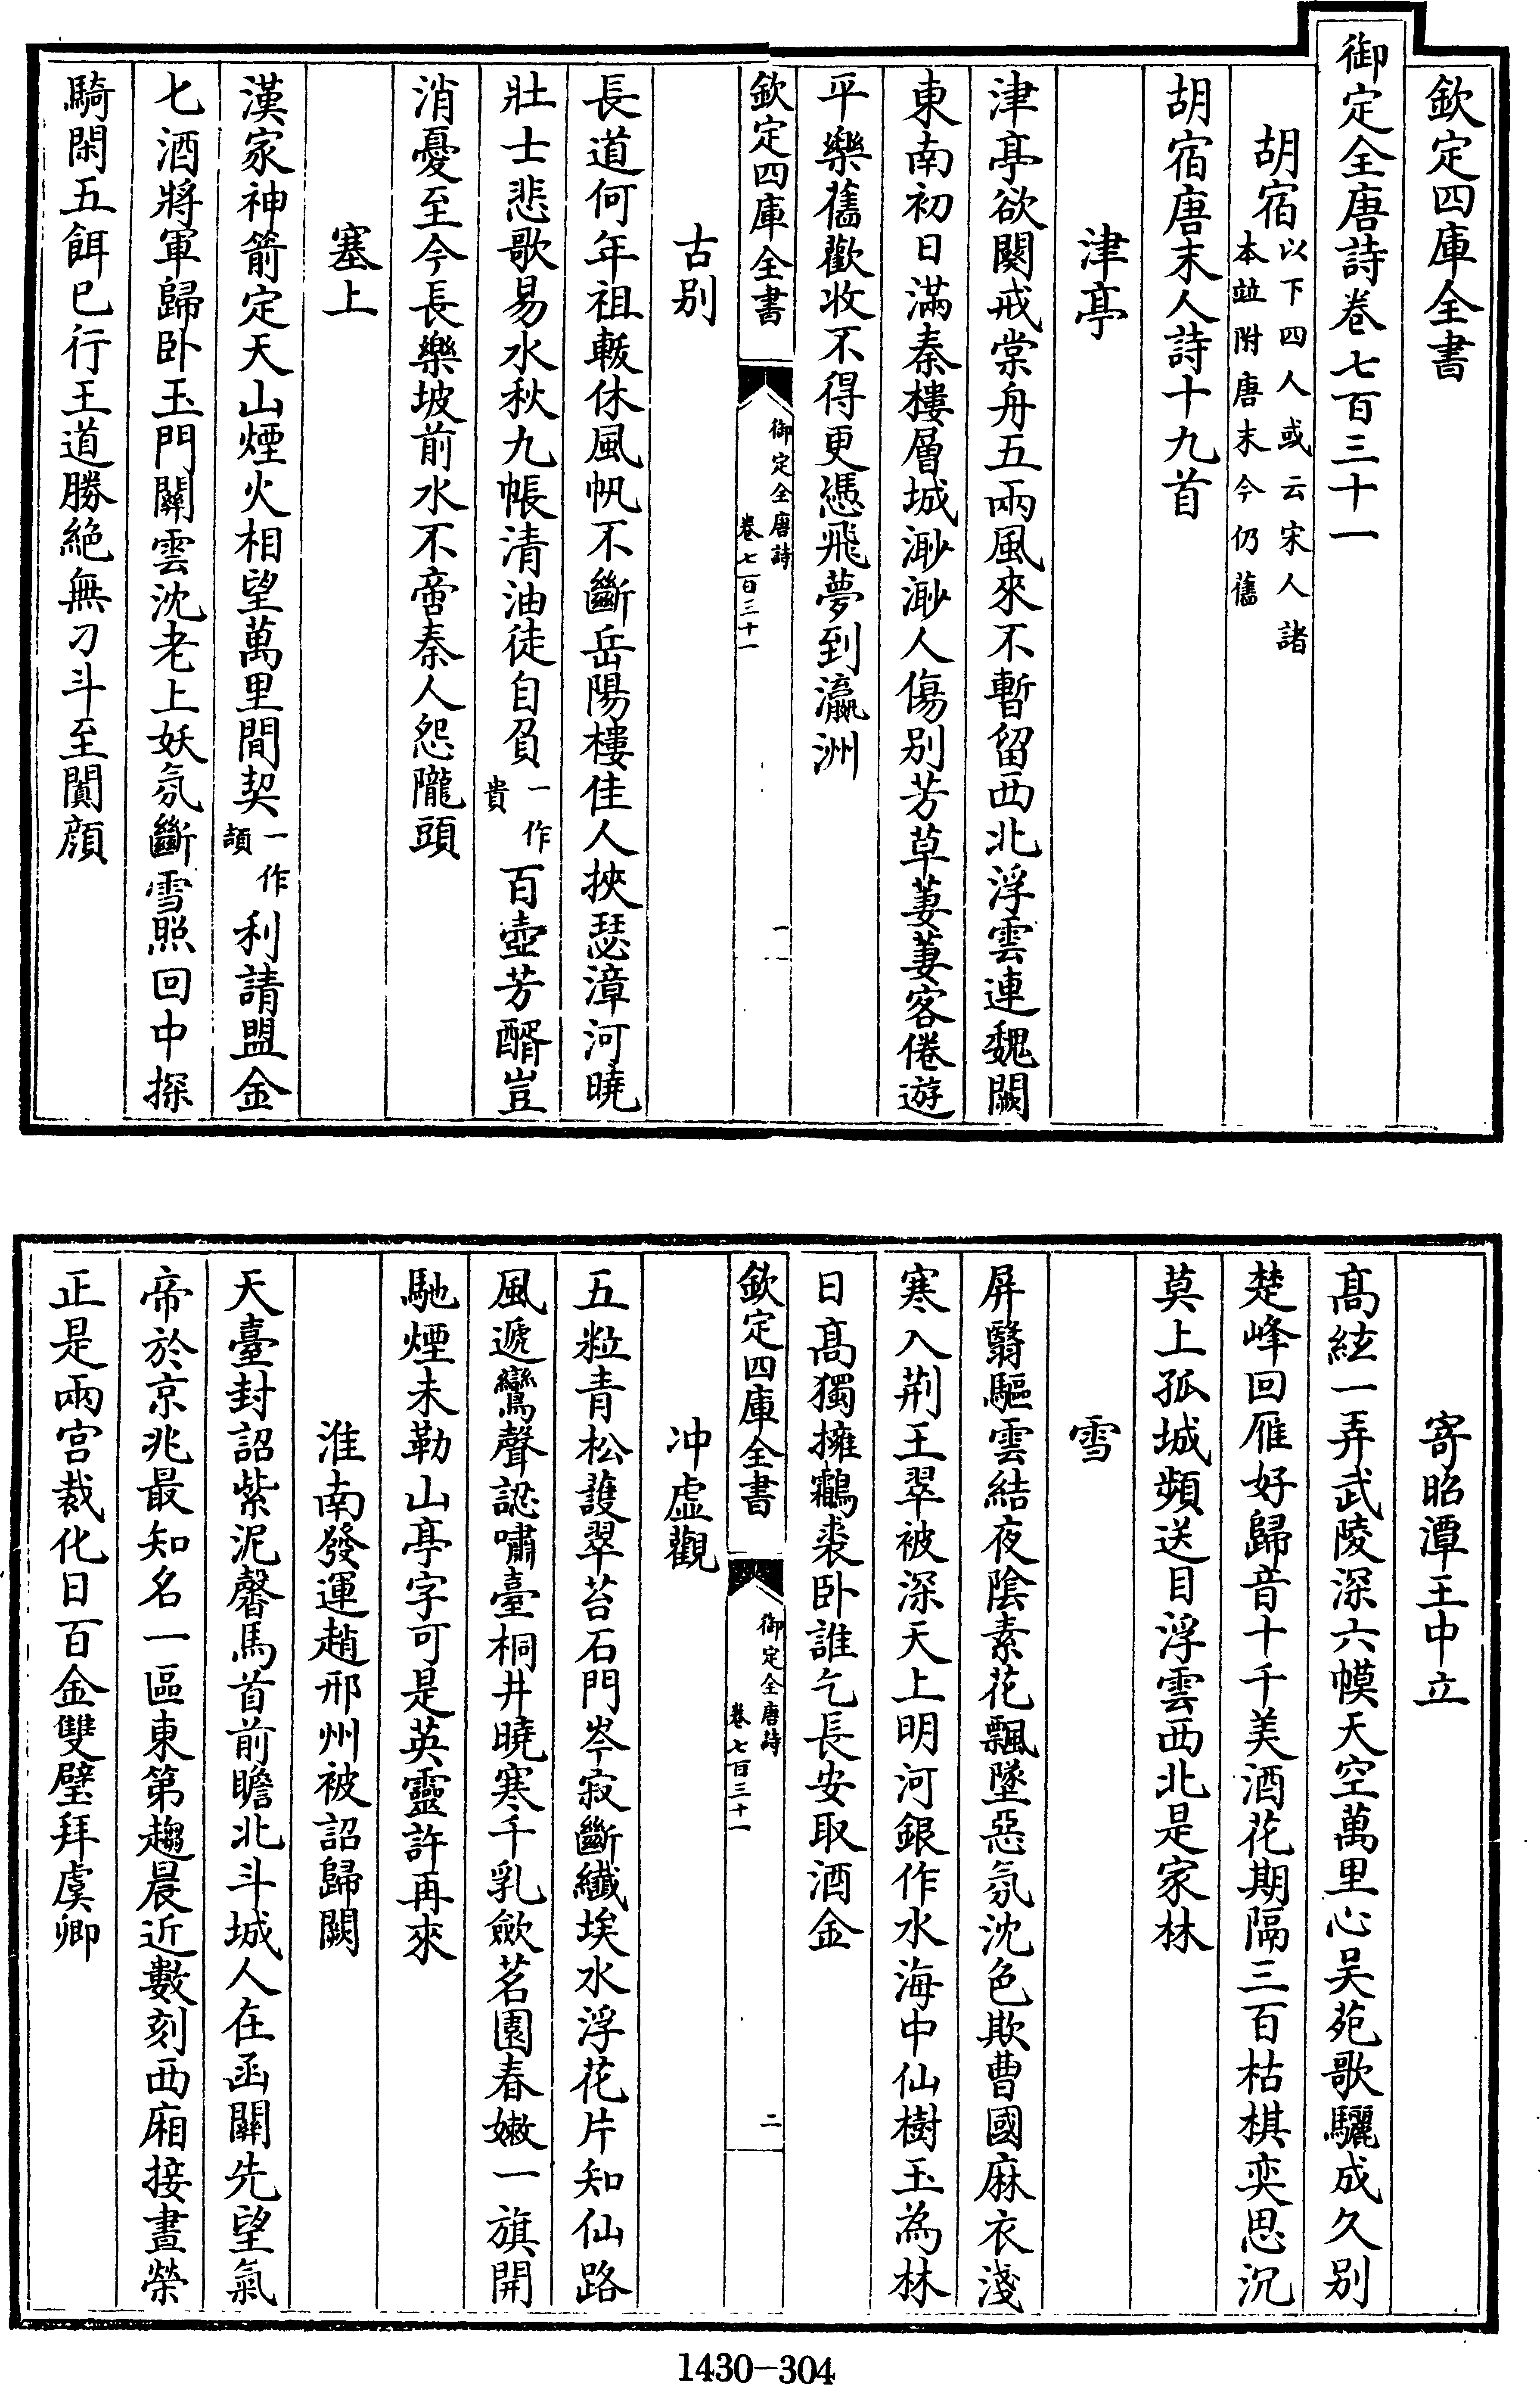 欽定四庫全書
御定全唐詩卷七百三十一
胡宿以下四人或云宋人諸本竝附唐末今仍舊
胡宿唐末人詩十九首
津亭
津亭欲闋戒棠舟五兩風來不暫留西北浮雲連魏闕
東南初日滿秦樓層城渺渺人傷别芳草萋萋客倦遊
平樂舊歡收不得更憑飛夢到瀛洲
欽定四庫全書
御定全唐詩
卷七百三十一
一
古别
長道何年祖載休風帆不斷岳陽樓佳人挾瑟漳河曉
壯士悲歌易水秋九帳清油徒自負一作貴百壺芳醑豈
消憂至今長樂坡前水不啻秦人怨隴頭
塞上
漢家神箭定天山煙火相望萬里間契一作頡利請盟金
七酒將軍歸卧玉門關雲沈老上妖氛斷雪照回中探
騎閑五餌已行王道勝絶無刁斗至闐顔
寄昭潭王中立
髙絃一弄武陵深六幙天空萬里心吴苑歌驪成久别
楚峰回雁好歸音十千美酒花期隔三百枯棋奕思沉
莫上孤城頻送目浮雲西北是家林
雪
屏翳驅雲結夜陰素花飄墜惡氛沈色欺曹國麻衣淺
寒入荆王翠被深天上明河銀作水海中仙樹玉為林
日髙獨擁鸘裘卧誰乞長安取酒金
欽定四庫全書
御定全唐詩
卷七百三十一
二
冲虛觀
五粒青松護翠苔石門岑寂斷纖埃水浮花片知仙路
風遞鸞聲認嘯臺桐井曉寒千乳歛茗園春嫩一旗開
馳煙未勒山亭字可是英靈許再來
淮南發運趙邢州被詔歸闕
天臺封詔紫泥馨馬首前瞻北斗城人在函關先望氣
帝於京兆最知名一區東第趨晨近數刻西廂接晝榮
正是兩宫裁化日百金雙璧拜虞卿
1430-304